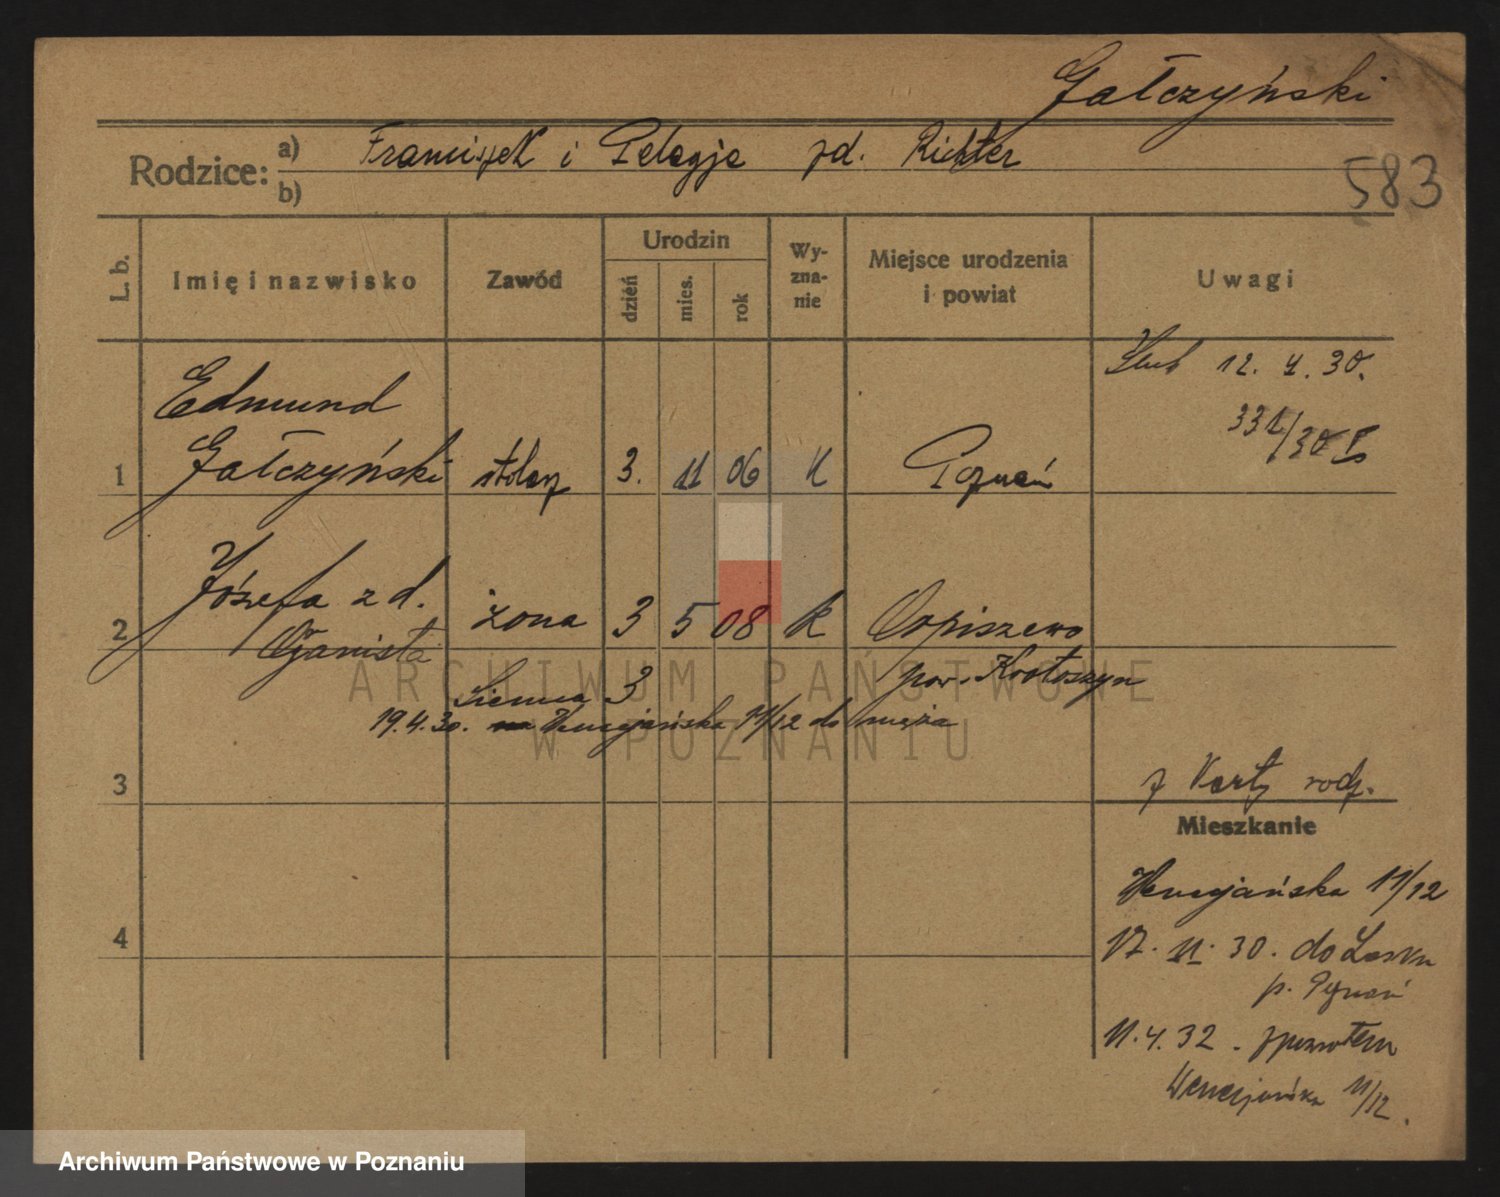 Gałczyński
Rodzice: a) Franciszek i Pelagja zd. Richter
b)
583
L. b.
Imię i nazwisko
Zawód
Urodzin
dzień
mies.
rok
Wy-
zna-
nie
Miejsce urodzenia
i powiat
Uwagi
Ślub 12. 4. 30.
331/30 I
Edmund
1 Gałczyński stolarz 3. 11 06 k Poznań
2 Józefa z d. żona 3 5 08 k
Organista
pow. Krotoszyn
Sienna 3
19.4.30. Wenecjańska 11/12 do męża
ARCHIWUM PAŃSTWOWE
W POZNANIU
3
z karty rodz.
Mieszkanie
Wenecjańska 11/12
4
17. 11. 30. do
p. Poznań
11. 4. 32. zpowrotem
Wenecjańska 11/12.
Archiwum Państwowe w Poznaniu